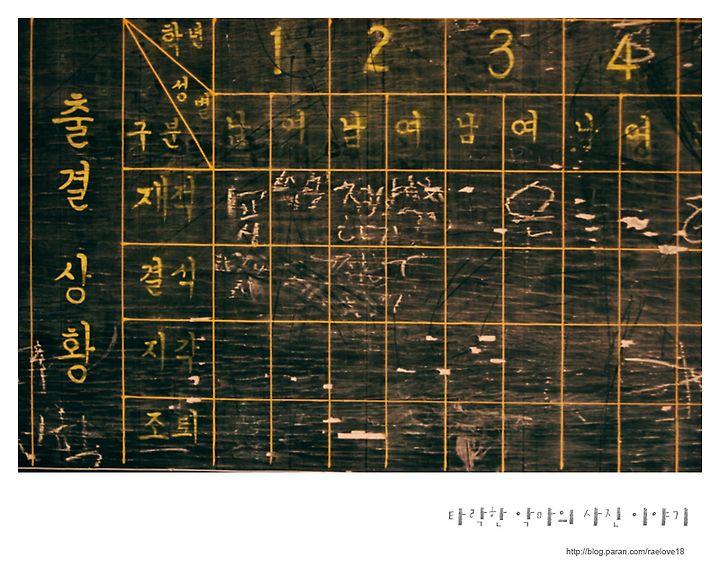 출결상황
학년 1 2 3 4
성별
구분 남 여 남 여 남 여 남 여
재적
결석
지각
조퇴
타락한 악마의 사진 이야기
http://blog.paran.com/raelove18